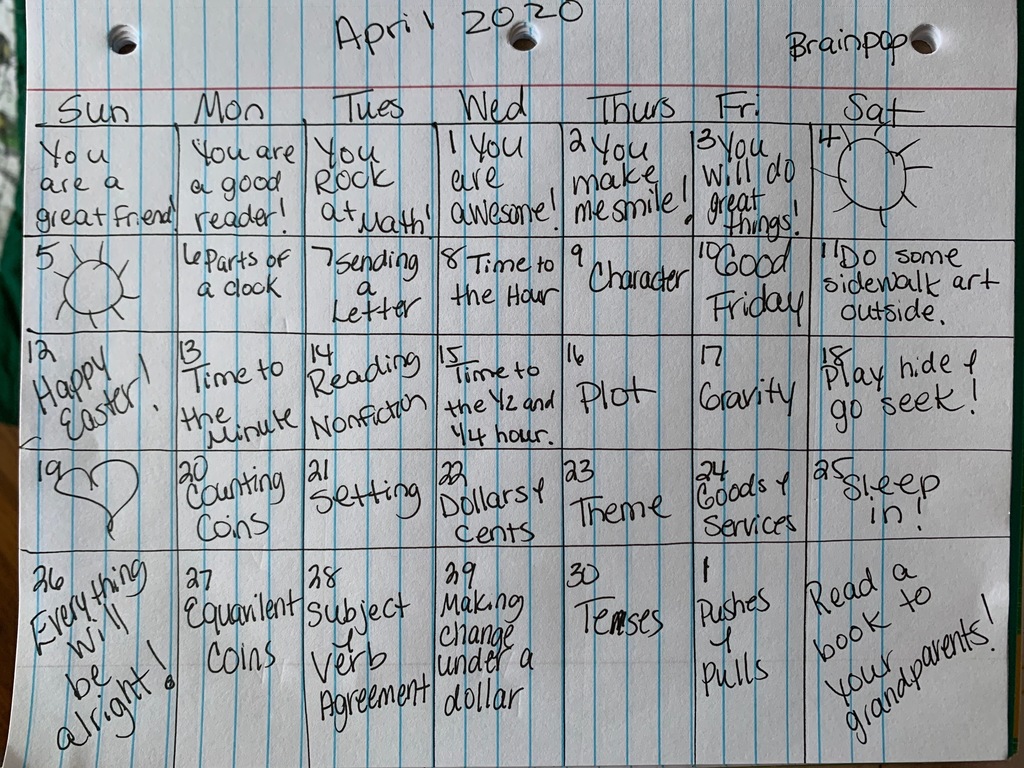 April 2020
Brainpop
Sun Mon Tues Wed Thurs Fri Sat
You
are a
great friend!
You are
a good
reader!
You
Rock
at Math!
1 You
are
awesome!
2 You
make
me smile!
3 You
will do
great
things!
4
5
6 Parts of
a clock
7 Sending
a
Letter
8 Time to
the Hour
9
Character
10 Good
Friday
11 Do some
sidewalk art
outside.
12
Happy
Easter!
13
Time to
the
Minute
14
Reading
Nonfiction
15
Time to
the 1/2 and
1/4 hour.
16
Plot
17
Gravity
18
Play hide &
go seek!
19
20
Counting
Coins
21
Setting
22
Dollars &
Cents
23
Theme
24
Goods &
Services
25 Sleep
in!
26
Everything
Will
be
alright!
27
Equavilent
Coins
28
Subject
&
Verb
Agreement
29
Making
change
under a
dollar
30
Tenses
1
Pushes
&
Pulls
Read a
book to
your
grandparents!